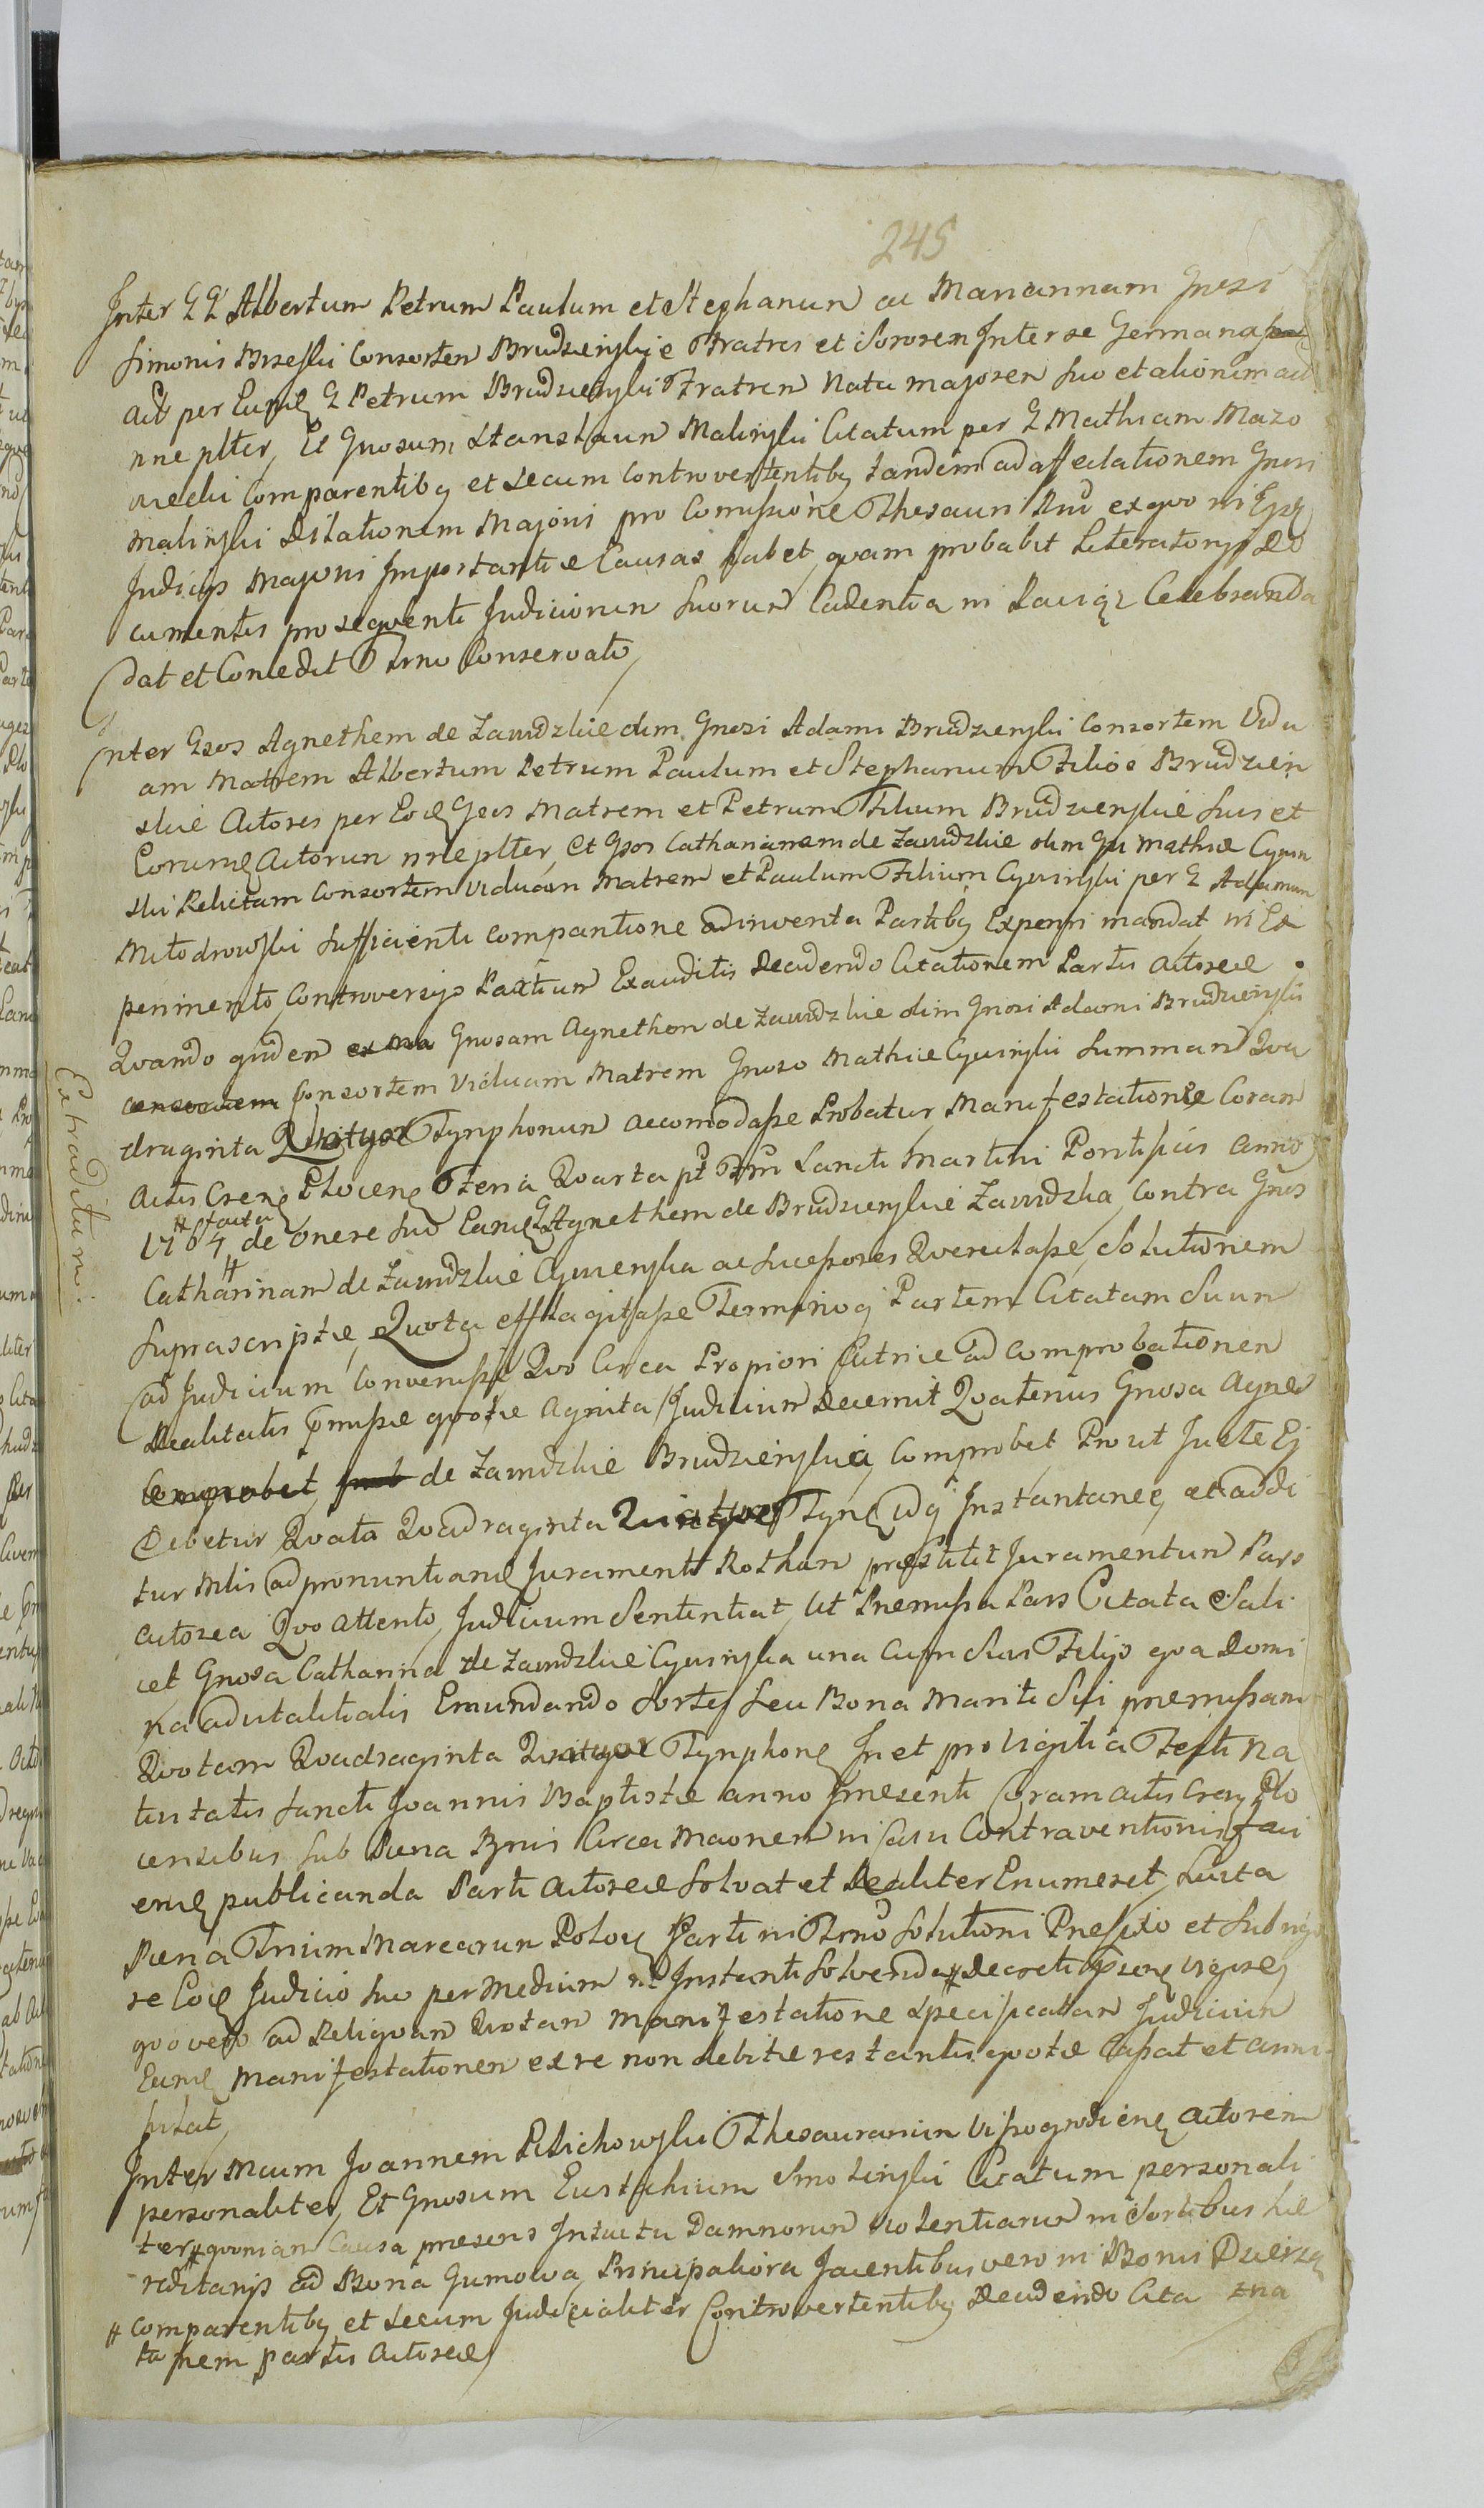 245
Inter GG Albertum Petrum Paulum et Stephanum ac Mariannam Gnosi
Simonis Brzeski Consortem Brudzenskie Fratres et Sororem Inter se Germanas
Act per Eunđ G Petrum Brudzienski Fratrem Natu majorem suo et aliorum act
nne plter, Et Gnosum Stanislaum Malinski Citatum per G Mathiam Mazo
wiecki Comparentibq et secum Controvertentibq tandem ad affectationem Gnosi
Malinski Dilationem Majoris pro Comissione Thesauri Rni ex quo in Ejsđ
Judicijs Majoris Importantiæ Causas habet, quam probabit Literatorijs Do
cumentis prosequenti Judiciorum suorum Cadentia in Raciąż Celebranda
dat et Concedit Trno Conservato,
Inter Gsos Agnethem de Zawidzkie olim Gnosi Adami Brudzienski Consortem Vidu
am Matrem Albertum Petrum Paulum et Stephanum Filios Brudzień
skie Actores per Eosđ Gsos Matrem et Petrum Filium Brudzienskie suis et
Eorumđ Actorum nne plter, et Gsos Catharinam de Zawidzkie olim Gsi Mathiæ Cywin
ski Relictam Consortem Viduam Matrem et Paulum Filium Cywinski per G Adamum
Mlodzowski sufficienti comparitione adinventa Partibq Experiri mandat, in Ex
perimento, Controversijs Partium Exauditis Decidendo Citationem Partis Actoreæ
Quando quidem Gnosam Agnethem de Zawidzkie olim Gnosi Adami Brudzienski
Consortem Viduam Matrem Gnoso Mathiæ Cywinski Summam Qua
draginta Quatuor Tynphonum accomodasse Probatur, Manifestatione Coram
Actis Cren Plocen Feria Quarta pt Ftm Sancti Martini Pontificis Anno
# facta
1764 de onere suo Eanđ G Agnethem de Brudzienskie Zawidzka, contra Gnos
#
Catharinam de Zawidzkie Cywinska ac sucessores Querulasse, Solutionem
Suprascriptæ, Quota efflagitasse Terminoq Partem Citatam Suum
ad Judicium Convenisse, Quo Circa Propiori Actrice ad comprobationem
Realitatis Pmissæ quotæ Agnita, Judicium Decernit Quatenus Gnosa Agnes
Comprobet, de Zawidzkie Brudzienska, Comprobet Prout Juste Ej
Debetur Quota Quadraginta Quatuor Tynđ, idq Instantanee, et addi
tur Mlis ad pronuntianđ Juramenti Rotham præstitit Juramentum Pars
Actorea Quo attento, Judicium Sententiat, Ut Præmissa Pars Citata Scili
cet Gnosa Catharina de Zawidzkie Cywinska una cum Suis Filijs qva Domi
na advitalitialis Emundando Sortes seu Bona Mariti Sui præmissam
Quotam Quadraginta Quatuor Tynphonđ In et pro Vigilia Festi Na
tivitatis Sancti Joannis Baptistæ anno Præsenti Coram Actis Cren Plo
censibus sub Pæna Bnis Circa Maonem in Casu Contraventionis faci
enđ publicanda Parti Actoreæ Solvat et Realiter Enumeret, Luita
Pæna Trium Marcarum Polon Parti in Trno Solutioni Præfixo et Sub rigo
re Eođ Judicio suo per Medium in Instanti Solvenda # Decreti Psenđ vigore
quo vero ad Reliquam Quotam Manifestatione Specificatam Judicium
Eanđ Manifestationem ex re non debitæ restantis quotæ Cassat et anni
hilat,
Inter Mcum Joannem Pilichowski Thesaurarium Vissogrodienđ Actorem
personaliter, Et Gnosum Eustachium Smolinski Citatum personali
ter # quoniam Causa præsens Intuitu Damnorum Violentiarum in Sortibus hæ
reditarijs ad Bona Gumowa, Principaliora Jacentibus vero in Bonis Dzierzą
zna
# Comparentibq et Secum Judicialiter Controvertentibq Decidendo Cita
tionem Partis Actoreæ
Extraditum